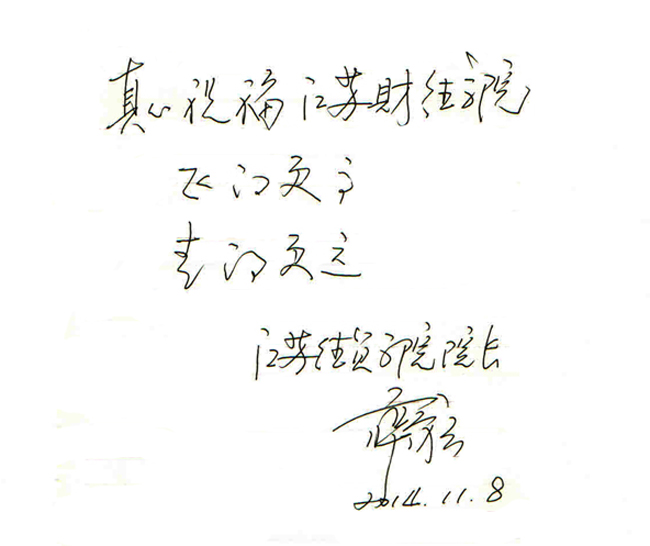 真心祝福江苏财经学院
飞得更高
走得更远
江苏经贸学院院长
2014.11.8